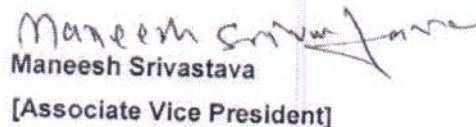 Maneesh Srivastava
Maneesh Srivastava
[Associate Vice President]